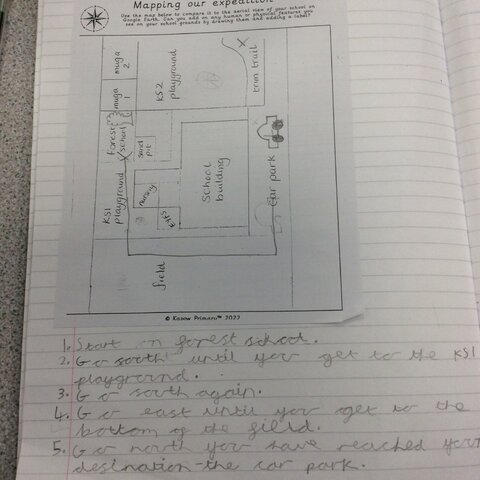 Mapping our expedition
Use the map below to compare it to the aerial view of your school on
Google Earth. Can you add on any human or physical features you
see on your school grounds by drawing them and adding a label?
muga
2
muga
1
KS2
playground
trim trail
Forest
school
sand
pit
KS1
playground
nursery
EYFS
School
building
car park
field
© Kapow Primary™ 2022
1. Start on forest school.
2. Go south until you get to the KS1
playground.
3. Go south again.
4. Go east until you get to the
bottom of the field.
5. Go north you have reached your
destination-the car park.